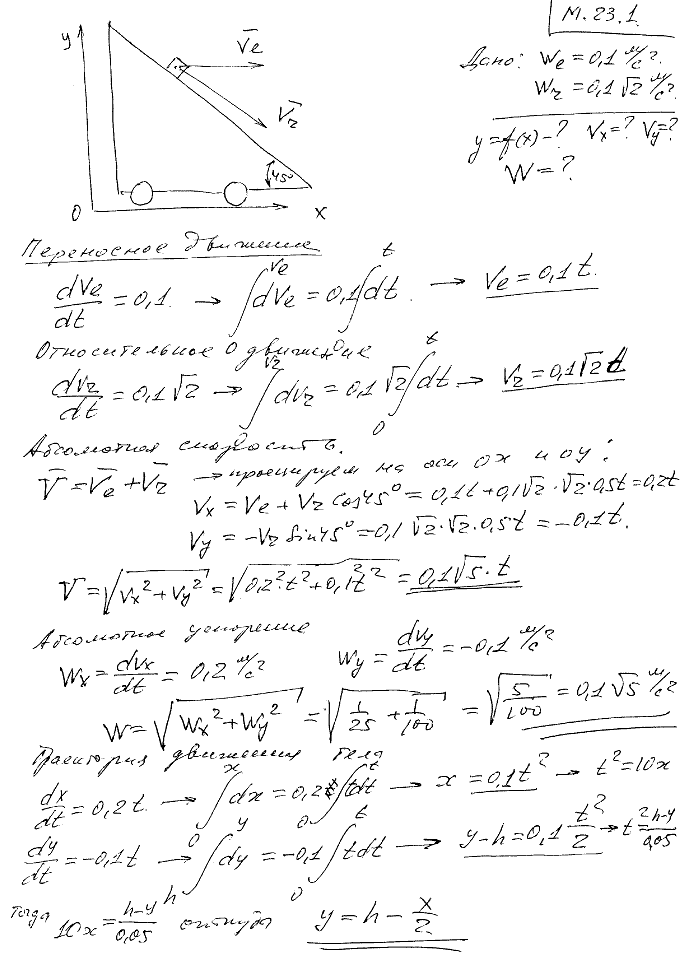 М. 23.1.
y
V̄e
V̄r
45°
0
x
Дано: We = 0,1 м/с².
Wr = 0,1 √2 м/с².
y = f(x) - ? Vx = ? Vy = ?
W = ?
Переносное движение
dVe/dt = 0,1. → ∫dVe = 0,1∫dt. → Ve = 0,1 t.
Относительное движение
dVr/dt = 0,1 √2 → ∫dVr = 0,1 √2 ∫dt → Vr = 0,1 √2 t
Абсолютная скорость.
V̄ = V̄e + V̄r → проецируем на оси ox и oy:
Vx = Ve + Vr cos 45° = 0,1t + 0,1√2 · √2 · 0,5t = 0,2t
Vy = -Vr sin 45° = 0,1 √2 · √2 · 0,5t = -0,1t.
V = √(Vx² + Vy²) = √(0,2² t² + 0,1² t²) = 0,1√5 · t
Абсолютное ускорение
Wx = dVx/dt = 0,2 м/с² Wy = dVy/dt = -0,1 м/с²
W = √(Wx² + Wy²) = √(1/25 + 1/100) = √(5/100) = 0,1 √5 м/с²
Траектория движения тела
dx/dt = 0,2t. → ∫dx = 0,2 ∫tdt → x = 0,1t² → t² = 10x
dy/dt = -0,1t → ∫dy = -0,1 ∫tdt → y - h = 0,1 t²/2 → t² = h-y/0,05
Тогда 10x = h-y/0,05 откуда y = h - x/2.